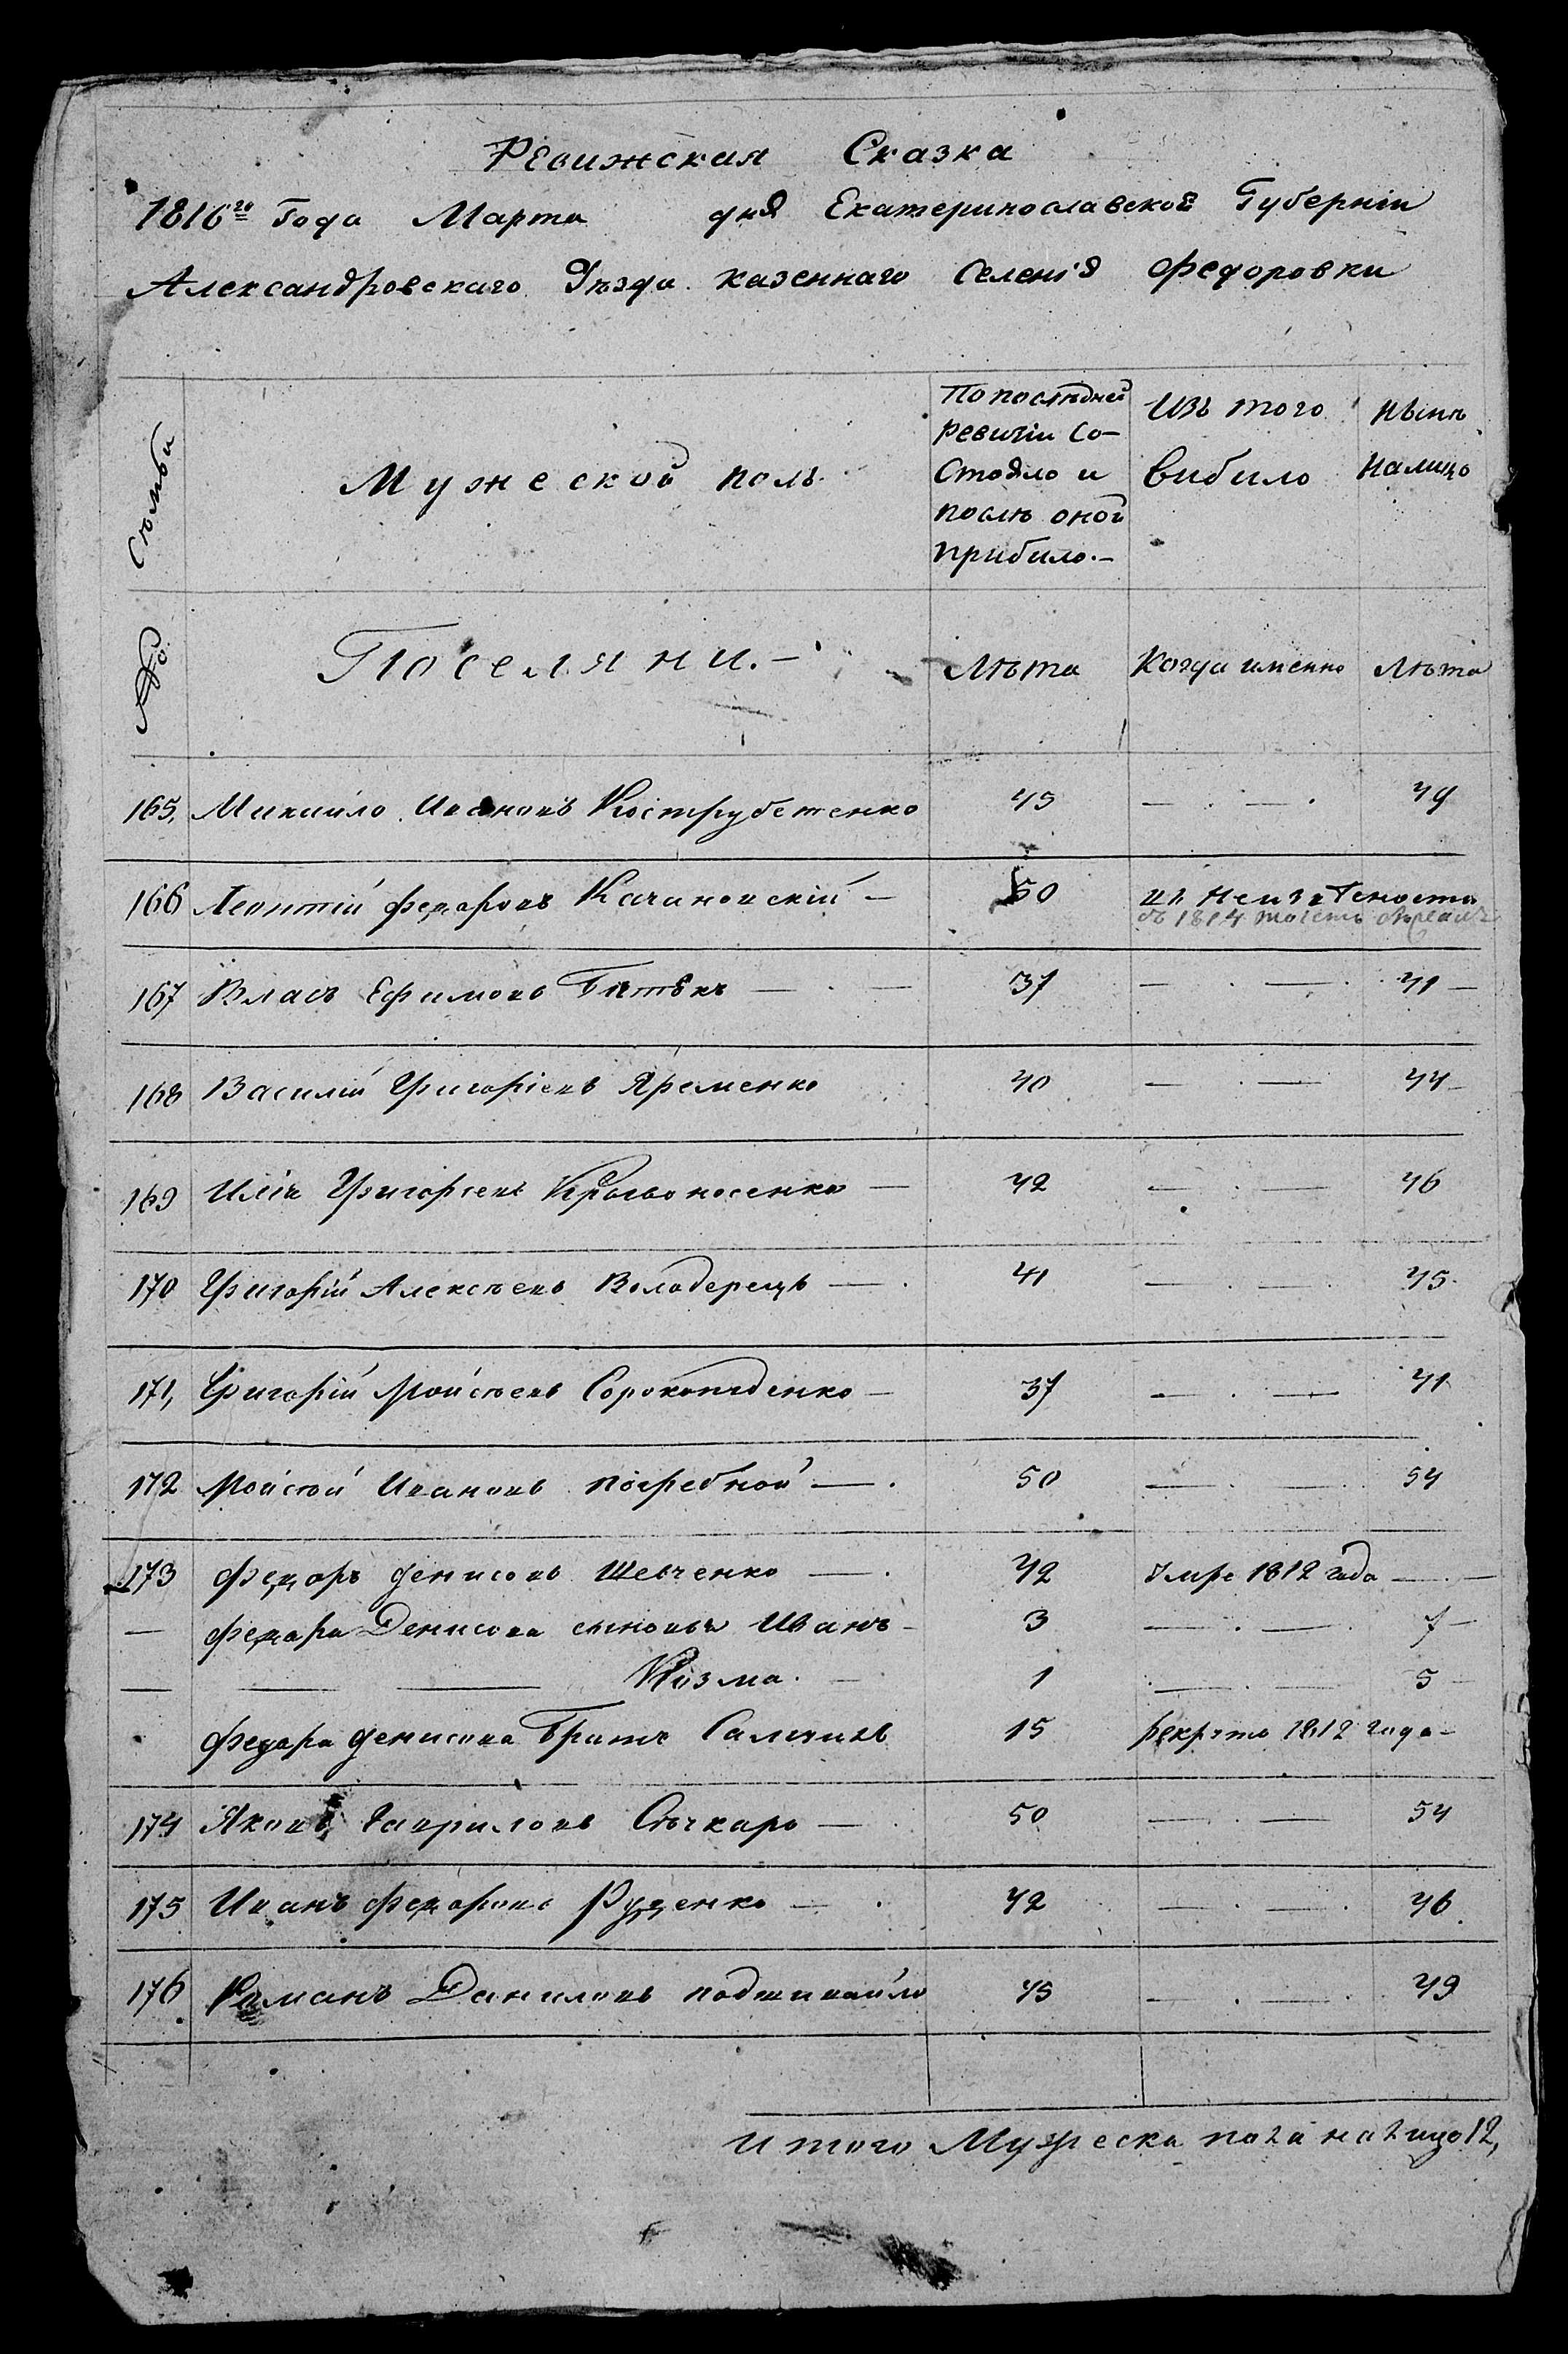 Ревижская Сказка
1816го Года Марта дня Екатеринославской Губернiи
Александровскаго Уѣзда казеннаго Селенiя Федоровки
Съмьи
Мужеской полъ
По послѣдней
ревизiи со-
стояло и
послѣ оной
прибило.-
Изъ того
вибило
нынѣ
налицо
№о
Поселяни.-
Лѣта
Когда именно
Лѣта
165, Михайло Ивановъ Кострубетенко 45 — . — . 49
166 Леонтiй Федоровъ Качановскiй — 50
въ 1814
167 Власъ Ефимовъ — . — 37 — . — . 41 —
168 Василiй Григорiевъ Яременко 40 — . — 44 —
169 Илiя Григорiевъ Кривоносенко — 42 — . — 46
170 Григорiй Алексѣевъ Володерецъ — . 41 — . — . 45.
171, Григорiй Мойсѣевъ Сорокопуденко — 37 — . — 41
172 Мойсѣй Ивановъ погребной — . 50 — . — . 54
173 Федоръ Денисовъ Шевченко — . 42 Умре 1812 года — . —
— Федора Денисова сыновья Иванъ — 3 — . — . 7 —
— — — Козма . — 1 . — . — 5 —
Федора Денисова Братъ 15 рекрутъ 1812 года —
174 Яковъ Гавриловъ — 50 — . — 54
175 Иванъ Федоровъ Руденко — . 42 — . — . 46
176 Романъ Даниловъ подшивайло 45 — . — . 49
Итого Мужеска пола налицо 12,